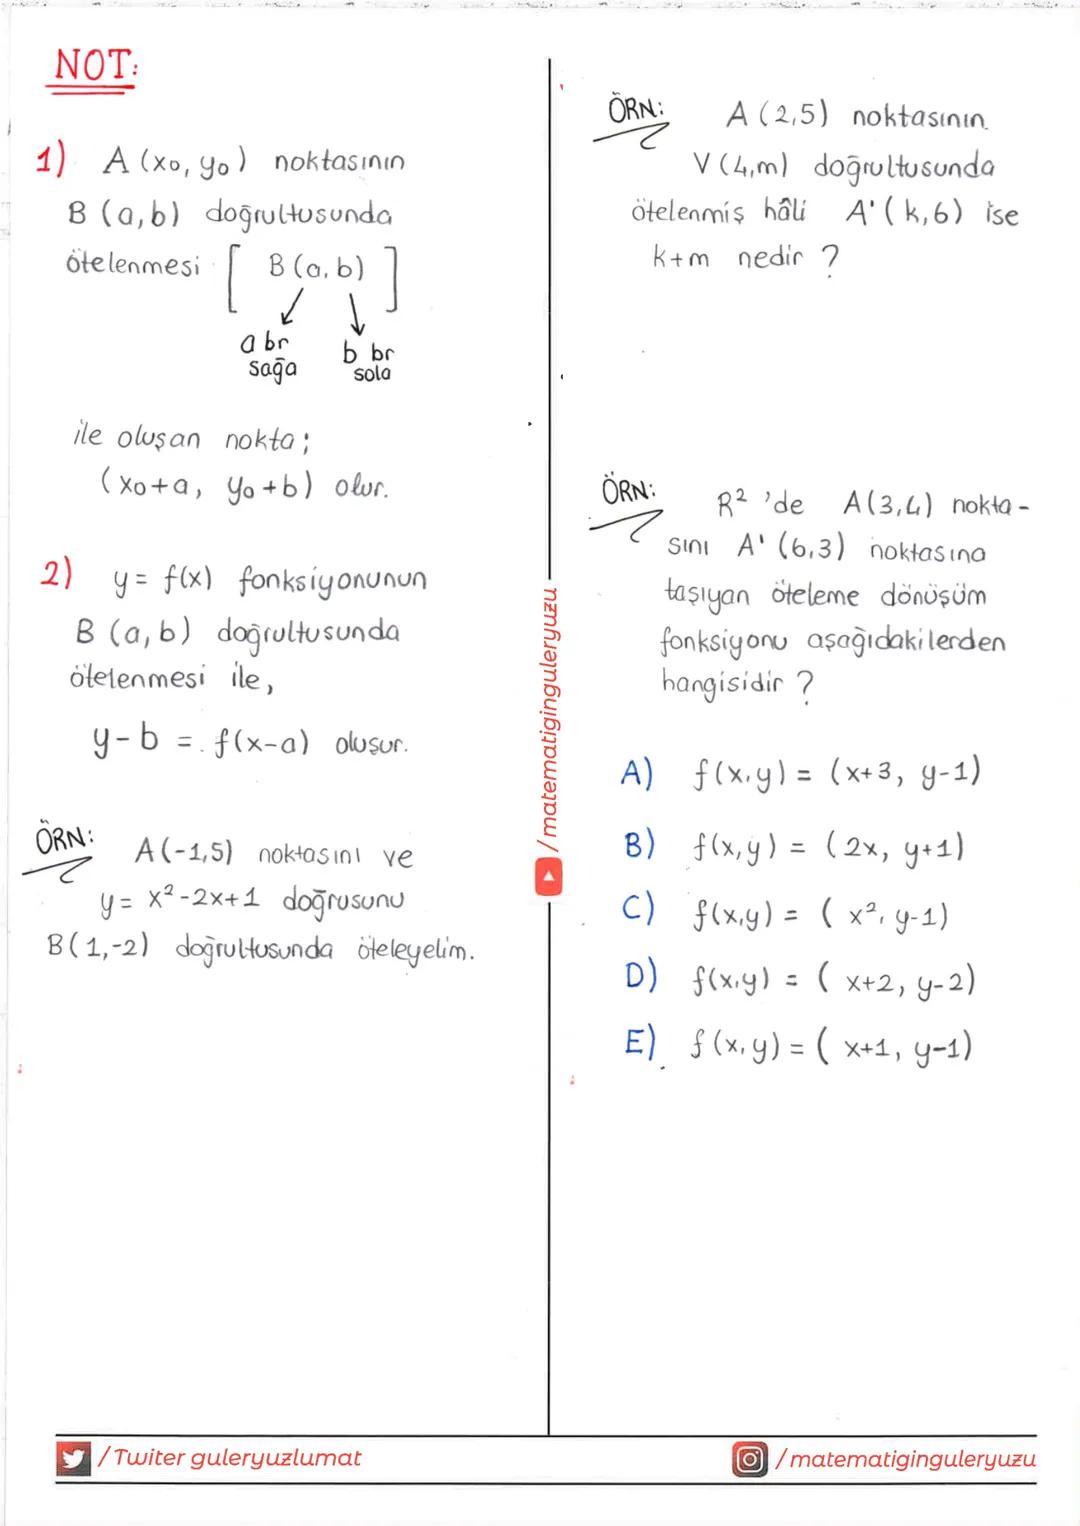 NOT:
1) A (x₀, y₀) noktasının
B (a,b) doğrultusunda
ötelenmesi [ B (a, b) ]
a br b br
sağa sola
ile oluşan nokta ;
(x₀+a, y₀+b) olur.
2) y= f(x) fonksiyonunun
B (a,b) doğrultusunda
ötelenmesi ile,
y-b = f(x-a) oluşur.
ÖRN: A(-1,5) noktasını ve
y= x²-2x+1 doğrusunu
B(1,-2) doğrultusunda öteleyelim.
/matematiginguleryuzu
ÖRN: A (2,5) noktasının
V (4,m) doğrultusunda
ötelenmiş hâli A'( k,6) ise
k+m nedir ?
ÖRN: R² 'de A(3,4) nokta-
sını A' (6,3) noktasına
taşıyan öteleme dönüşüm
fonksiyonu aşağıdakilerden
hangisidir ?
A) f(x,y) = (x+3, y-1)
B) f(x,y) = (2x, y+1)
C) f(x,y) = ( x², y-1)
D) f(x,y) = ( x+2, y-2)
E) f(x,y) = ( x+1, y-1)
/Twiter guleryuzlumat
/matematiginguleryuzu